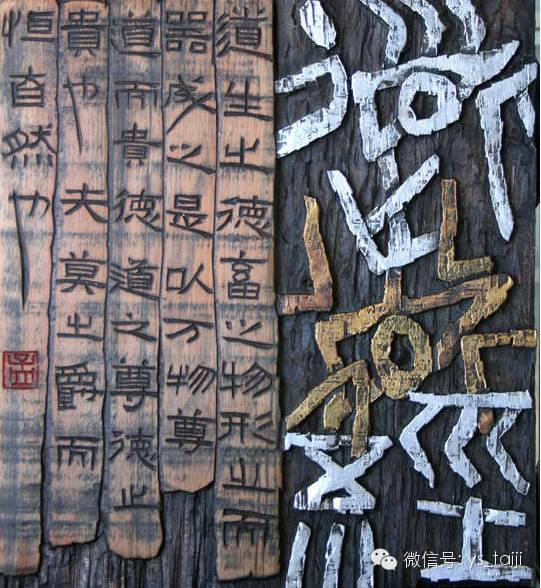 道德經
道生之德畜之物形之而
器成之是以万物尊
道而貴德道之尊德之
貴也夫莫之爵而
恒自然也
微信号: ys_taiji